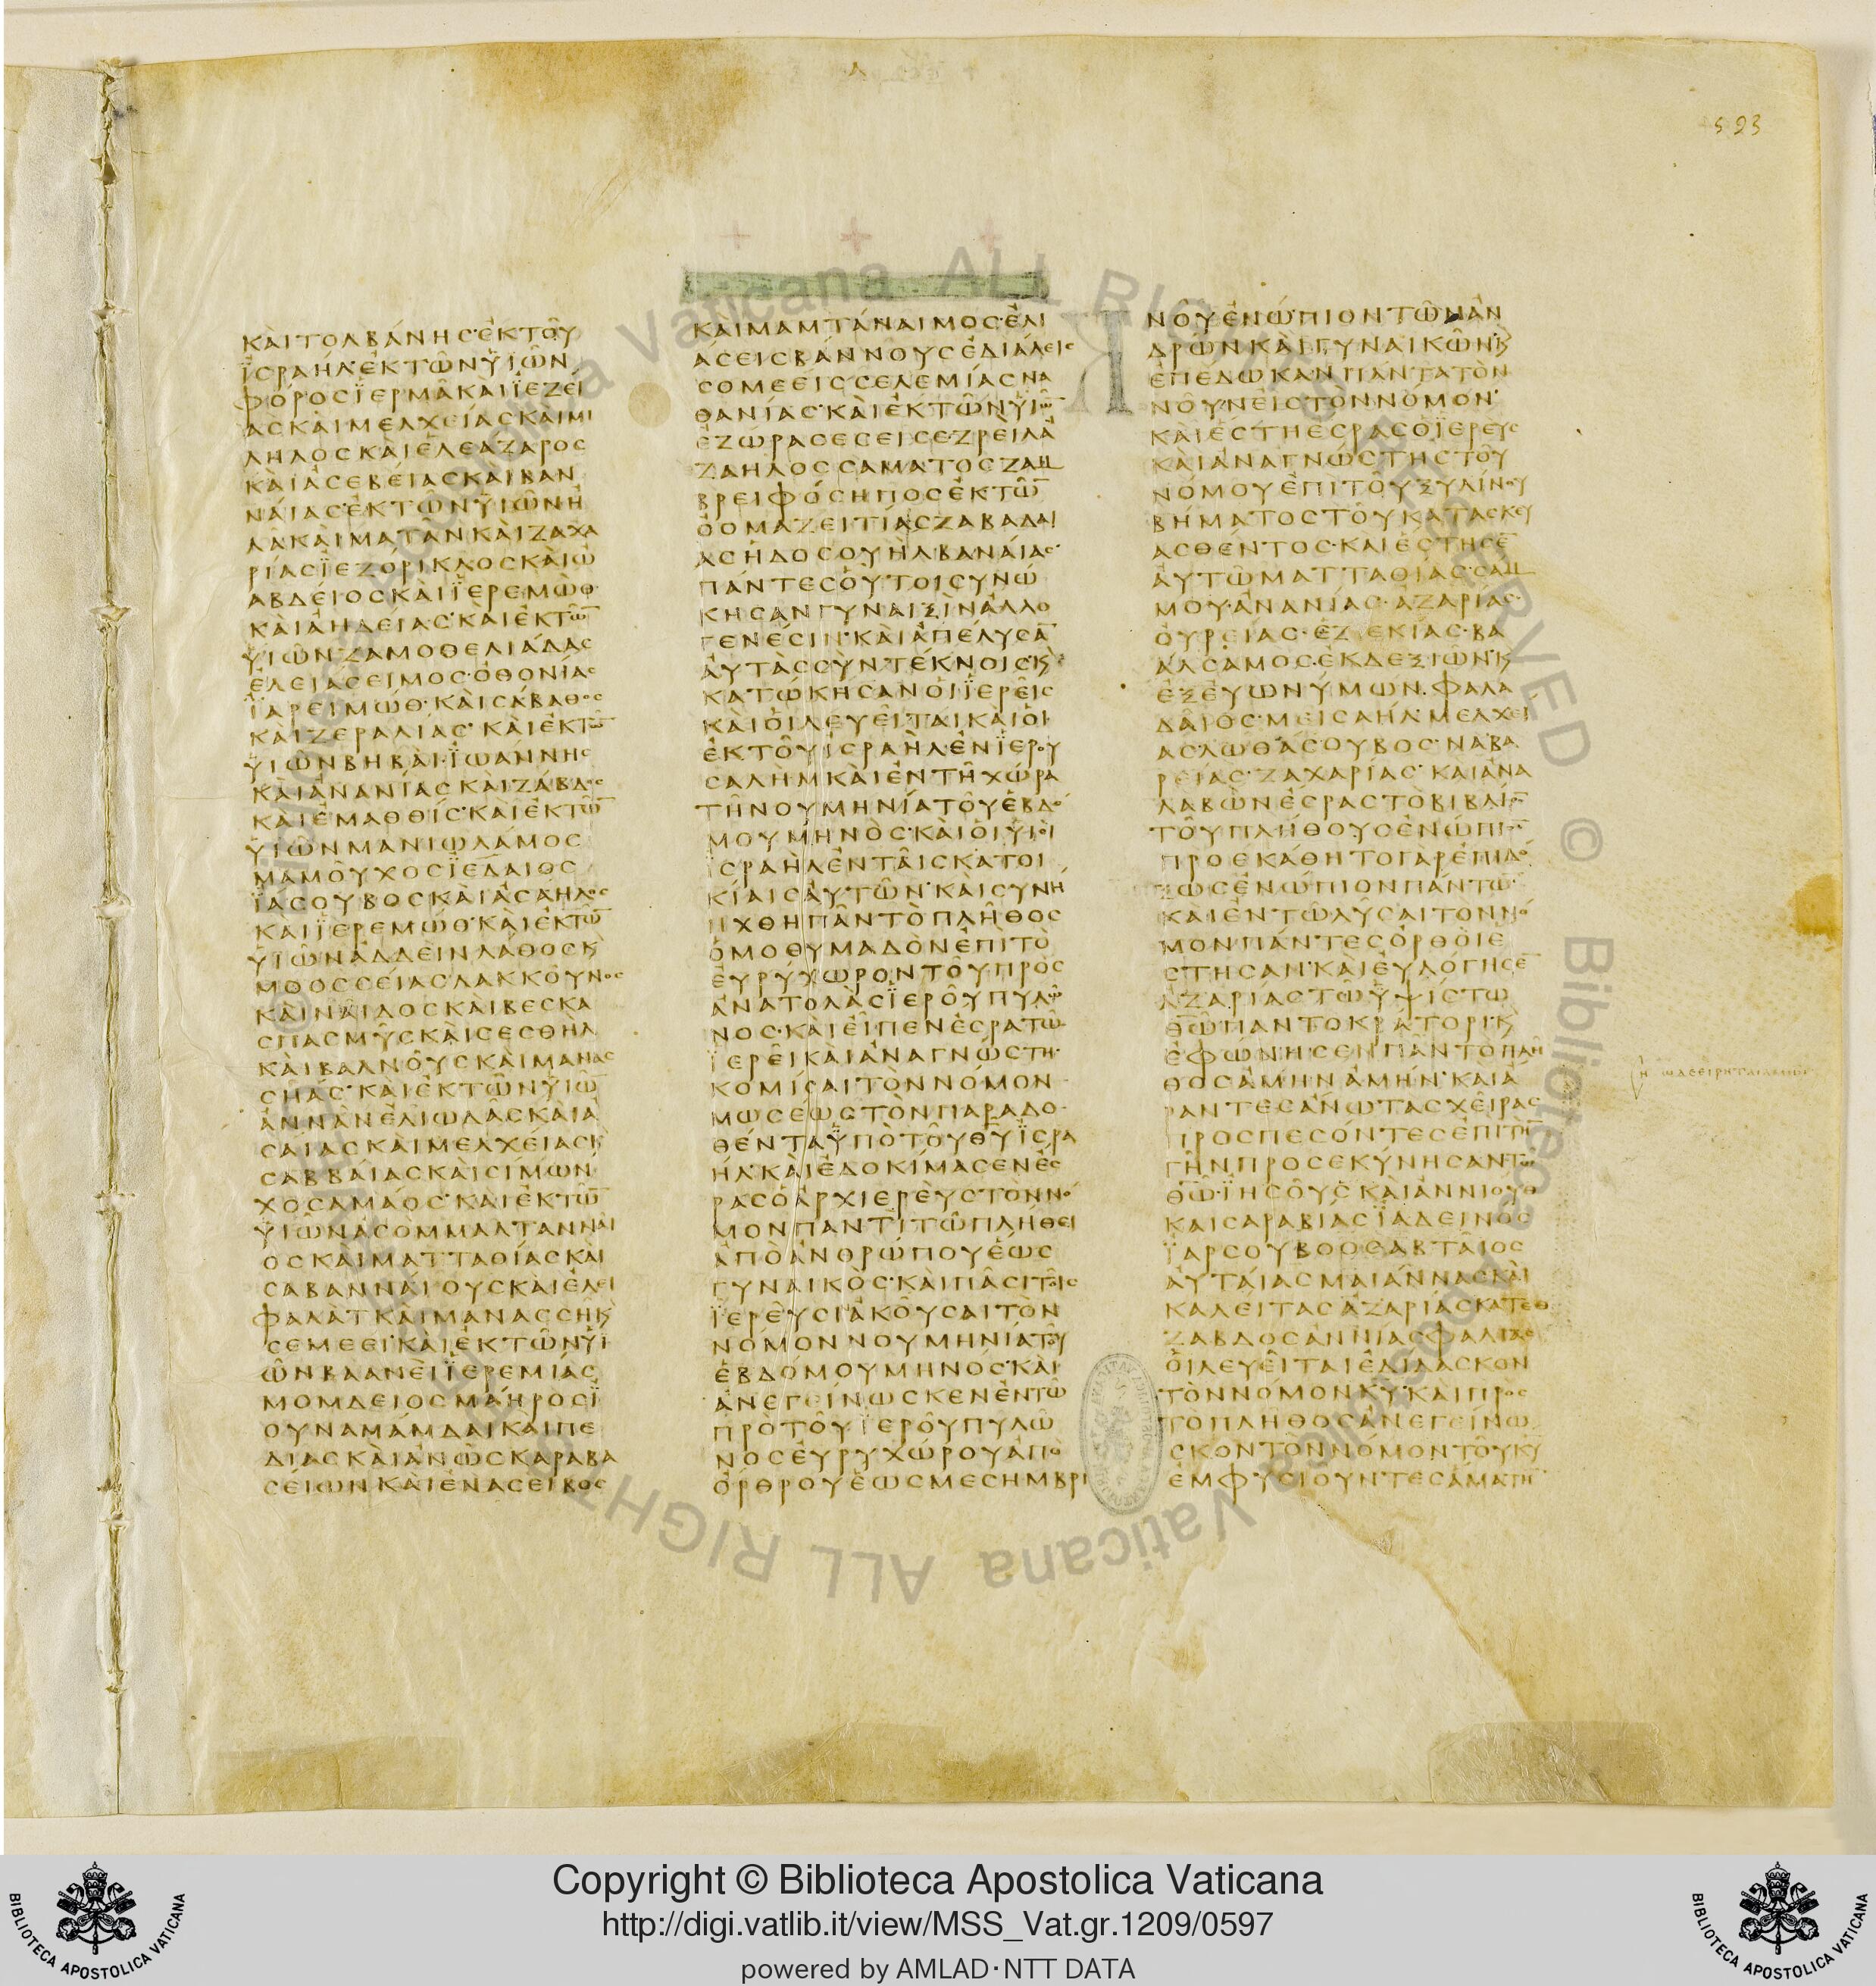 593
ΚΑΙΤΟΛΒΑΝΗΣ·ΕΚΤΟΥ
ΙΣΡΑΗΛ·ΕΚΤΩΝΥΙΩΝ
ΦΟΡΟΣΙΕΡΜΑΚΑΙΙΕΖΕΙ
ΑΣΚΑΙΜΕΛΧΕΙΑΣΚΑΙΜΙ
ΛΗΛΟΣΚΑΙΕΛΕΑΖΑΡΟΣ
ΚΑΙΑΣΕΒΕΙΑΣΚΑΙΒΑΝ
ΝΑΙΑΣ·ΕΚΤΩΝΥΙΩΝΗ
ΛΑΚΑΙΜΑΤΑΝΚΑΙΖΑΧΑ
ΡΙΑΣΙΕΖΟΡΙΚΛΟΣΚΑΙΩ
ΑΒΔΕΙΟΣΚΑΙΙΕΡΕΜΩΘ
ΚΑΙΑΗΔΕΙΑΣ·ΚΑΙΕΚΤΩ̅
ΥΙΩΝΖΑΜΟΘΕΛΙΑΔΑΣ
ΕΛΕΙΑΣΕΙΜΟΣ·ΟΘΟΝΙΑΣ
ΙΑΡΕΙΜΩΘ·ΚΑΙΣΑΒΑΘΟΣ
ΚΑΙΖΕΡΑΛΙΑΣ·ΚΑΙΕΚΤΩ̅
ΥΙΩΝΒΗΒΑΙ·ΙΩΑΝΝΗΣ
ΚΑΙΑΝΑΝΙΑΣΚΑΙΖΑΒΔΟΣ
ΚΑΙΕΜΑΘΘΙΣ·ΚΑΙΕΚΤΩ̅
ΥΙΩΝΜΑΝΙΩΛΑΜΟΣ
ΜΑΜΟΥΧΟΣΙΕΔΑΙΟΣ
ΙΑΣΟΥΒΟΣΚΑΙΑΣΑΗΛΟΣ
ΚΑΙΙΕΡΕΜΩΘ·ΚΑΙΕΚΤΩ̅
ΥΙΩΝΑΔΔΕΙΝΛΑΘΟΣΚ
ΜΘΟΣΣΕΙΑΣΛΑΚΚΟΥΝΟΣ
ΚΑΙΝΑΙΔΟΣΚΑΙΒΕΣΚΑ
ΣΠΑΣΜΥΣΚΑΙΣΕΣΘΗΛ
ΚΑΙΒΑΛΝΟΥΣΚΑΙΜΑΝΑΣ
ΣΗΑΣ·ΚΑΙΕΚΤΩΝΥΙΩ̅
ΑΝΝΑΝΕΛΙΩΔΑΣΚΑΙΑ
ΣΑΙΑΣΚΑΙΜΕΛΧΕΙΑΣΚ
ΣΑΒΒΑΙΑΣΚΑΙΣΙΜΩΝ
ΧΟΣΑΜΑΟΣ·ΚΑΙΕΚΤΩ̅
ΥΙΩΝΑΣΟΜΜΑΛΤΑΝΝΑΙ
ΟΣΚΑΙΜΑΤΤΑΘΙΑΣΚΑΙ
ΣΑΒΑΝΝΑΙΟΥΣΚΑΙΕΛΕΙ
ΦΑΛΑΤΚΑΙΜΑΝΑΣΣΗΚ
ΣΕΜΕΕΙ·ΚΑΙΕΚΤΩΝΥΙ
ΩΝΒΑΑΝΕΙΙΕΡΕΜΙΑΣ
ΜΟΜΔΕΙΟΣΜΑΗΡΟΣΙ
ΟΥΝΑΜΑΜΔΑΙΚΑΙΠΕ
ΔΙΑΣΚΑΙΑΝΩΣΚΑΡΑΒΑ
ΣΕΙΩΝΚΑΙΕΝΑΣΕΙΒΟΣ
ΚΑΙΜΑΜΤΑΝΑΙΜΟΣ·ΕΛΙ
ΑΣΕΙΣΒΑΝΝΟΥΣΕΔΙΑΛΕΙΣ
ΣΟΜΕΕΙΣΣΕΛΕΜΙΑΣΝΑ
ΘΑΝΙΑΣ·ΚΑΙΕΚΤΩΝΥΙΩ̅
ΕΖΩΡΑΣΕΣΕΙΣΕΖΡΕΙΛΑ
ΖΑΗΛΟΣΣΑΜΑΤΟΣΖΑΜ
ΒΡΕΙΦΟΣΗΠΟΣΕΚΤΩ̅
ΟΟΜΑΖΕΙΤΙΑΣΖΑΒΑΔΑΙ
ΑΣΗΔΟΣΟΥΗΛΒΑΝΑΙΑΣ·
ΠΑΝΤΕΣΟΥΤΟΙΣΥΝΩ
ΚΗΣΑΝΓΥΝΑΙΞΙΝΑΛΛΟ
ΓΕΝΕΣΙΝ·ΚΑΙΑΠΕΛΥΣΑ̅
ΑΥΤΑΣΣΥΝΤΕΚΝΟΙΣ·Κ
ΚΑΤΩΚΗΣΑΝΟΙΙΕΡΕΙΣ
ΚΑΙΟΙΛΕΥΕΙΤΑΙΚΑΙΟΙ
ΕΚΤΟΥΙΣΡΑΗΛΕΝΙΕΡΟΥ
ΣΑΛΗΜΚΑΙΕΝΤΗΧΩΡΑ
ΤΗΝΟΥΜΗΝΙΑΤΟΥΕΒΔΟ
ΜΟΥΜΗΝΟΣ·ΚΑΙΟΙΥΙΟΙ
ΙΣΡΑΗΛΕΝΤΑΙΣΚΑΤΟΙ
ΚΙΑΙΣΑΥΤΩΝ·ΚΑΙΣΥΝΗ
ΧΘΗΠΑΝΤΟΠΛΗΘΟΣ
ΟΜΟΘΥΜΑΔΟΝΕΠΙΤΟ
ΕΥΡΥΧΩΡΟΝΤΟΥΠΡΟΣ
ΑΝΑΤΟΛΑΣΙΕΡΟΥΠΥΛΩ
ΝΟΣ·ΚΑΙΕΙΠΕΝΕΣΡΑΤΩ
ΙΕΡΕΙΚΑΙΑΝΑΓΝΩΣΤΗ·
ΚΟΜΙΣΑΙΤΟΝΝΟΜΟΝ
ΜΩΣΕΩΣΤΟΝΠΑΡΑΔΟ
ΘΕΝΤΑΥΠΟΤΟΥΘ̅Υ̅ΙΣΡΑ
ΗΛ·ΚΑΙΕΔΟΚΙΜΑΣΕΝΕΣ
ΡΑΣΟΑΡΧΙΕΡΕΥΣΤΟΝΝΟ
ΜΟΝΠΑΝΤΙΤΩΠΛΗΘΕΙ
ΑΠΟΑΝΘΡΩΠΟΥΕΩΣ
ΓΥΝΑΙΚΟΣ·ΚΑΙΠΑΣΙΤΟΙΣ
ΙΕΡΕΥΣΙΑΚΟΥΣΑΙΤΟΝ
ΝΟΜΟΝΝΟΥΜΗΝΙΑΤΟΥ
ΕΒΔΟΜΟΥΜΗΝΟΣ·ΚΑΙ
ΑΝΕΓΕΙΝΩΣΚΕΝΕΝΤΩ
ΠΡΟΤΟΥΙΕΡΟΥΠΥΛΩ
ΝΟΣΕΥΡΥΧΩΡΟΥΑΠΟ
ΟΡΘΡΟΥΕΩΣΜΕΣΗΜΒΡΙ
ΝΟΥΕΝΩΠΙΟΝΤΩΝΑΝ
ΔΡΩΝΚΑΙΓΥΝΑΙΚΩΝ·Κ
ΕΠΕΔΩΚΑΝΠΑΝΤΑΤΟΝ
ΝΟΥΝΕΙΣΤΟΝΝΟΜΟΝ·
ΚΑΙΕΣΤΗΕΣΡΑΣΟΙΕΡΕΥΣ
ΚΑΙΑΝΑΓΝΩΣΤΗΣΤΟΥ
ΝΟΜΟΥΕΠΙΤΟΥΞΥΛΙΝΟΥ
ΒΗΜΑΤΟΣΤΟΥΚΑΤΑΣΚΕΥ
ΑΣΘΕΝΤΟΣ·ΚΑΙΕΣΤΗΣΕ̅
ΑΥΤΩΜΑΤΤΑΘΙΑΣ·ΣΑΜ
ΜΟΥ·ΑΝΑΝΙΑΣ·ΑΖΑΡΙΑΣ·
ΟΥΡΕΙΑΣ·ΕΖΕΚΙΑΣ·ΒΑ
ΑΛΣΑΜΟΣ·ΕΚΔΕΞΙΩΝ·Κ
ΕΞΕΥΩΝΥΜΩΝ·ΦΑΛΑ
ΔΑΙΟΣ·ΜΕΙΣΑΗΛ·ΜΕΛΧΕΙ
ΑΣΛΩΘΑΣΟΥΒΟΣ·ΝΑΒΑ
ΡΕΙΑΣ·ΖΑΧΑΡΙΑΣ·ΚΑΙΑΝΑ
ΛΑΒΩΝΕΣΡΑΣΤΟΒΙΒΛΙΟ̅
ΤΟΥΠΛΗΘΟΥΣΕΝΩΠΙΟ̅
ΠΡΟΕΚΑΘΗΤΟΓΑΡΕΠΙΔΟ
ΞΩΣΕΝΩΠΙΟΝΠΑΝΤΩ̅
ΚΑΙΕΝΤΩΛΥΣΑΙΤΟΝΝΟ
ΜΟΝΠΑΝΤΕΣΟΡΘΟΙΕ
ΣΤΗΣΑΝ·ΚΑΙΕΥΛΟΓΗΣΕ̅
ΑΖΑΡΙΑΣΤΩΥΨΙΣΤΩ
Θ̅Ω̅ΠΑΝΤΟΚΡΑΤΟΡΙ·Κ
ΕΦΩΝΗΣΕΝΠΑΝΤΟΠΛΗ
ΘΟΣΑΜΗΝΑΜΗΝ·ΚΑΙΑ
ΡΑΝΤΕΣΑΝΩΤΑΣΧΕΙΡΑΣ
ΠΡΟΣΠΕΣΟΝΤΕΣΕΠΙΤΗ̅
ΓΗΝ·ΠΡΟΣΕΚΥΝΗΣΑΝΤΩ
Θ̅Ω̅·ΙΗΣΟΥΣΚΑΙΑΝΝΙΟΥΘ
ΚΑΙΣΑΡΑΒΙΑΣΙΑΔΕΙΝΟΣ
ΙΑΡΣΟΥΒΟΟΣΑΒΤΑΙΟΣ
ΑΥΤΑΙΑΣΜΑΙΑΝΝΑΣΚΑΙ
ΚΑΛΕΙΤΑΣΑΖΑΡΙΑΣΚΑΤΕΘ
ΖΑΒΔΟΣΑΝΝΙΑΣΦΑΛΙΑΣ
ΟΙΛΕΥΕΙΤΑΙΕΔΙΔΑΣΚΟΝ
ΤΟΝΝΟΜΟΝΚ̅Υ̅·ΚΑΙΠΡΟΣ
ΤΟΠΛΗΘΟΣΑΝΕΓΕΙΝΩ
ΣΚΟΝΤΟΝΝΟΜΟΝΤΟΥΚ̅Υ̅
ΕΜΦΥΣΙΟΥΝΤΕΣΑΜΑΤΗ̅
Copyright © Biblioteca Apostolica Vaticana
http://digi.vatlib.it/view/MSS_Vat.gr.1209/0597
powered by AMLAD·NTT DATA
BIBLIOTECA APOSTOLICA VATICANA
BIBLIOTECA APOSTOLICA VATICANA